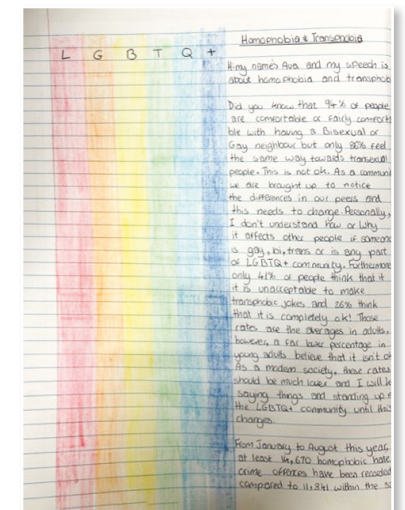 L G B T Q +
Homophobia & Transphobia
Hi my name's Ava and my speech is
about homophobia and transphob
Did you know that 94% of people
are comfortable or fairly comfort
ble with having a Bisexual or
Gay neighbour but only 86% feel
the same way towards transexual
people. This is not ok. As a commun
we are brought up to notice
the differences in our peers and
this needs to change. Personally,
I don't understand how or why
it affects other people if someone
is gay, bi, trans or is any part
of LGBTQ+ community. Furthermore
only 41% of people think that it
it is unacceptable to make
transphobic jokes and 26% think
that it is completely ok! Those
rates are the averages in adults,
however, a far lower percentage in
young adults believe that it isn't ok
As a modern society, these rates
should be much lower and I will k
saying things and standing up f
the LGBTQ+ community until this
changes.
From January to August this year,
at least 14,670 homophobic hate
crime offences have been recorded
compared to 11,841 within the sa